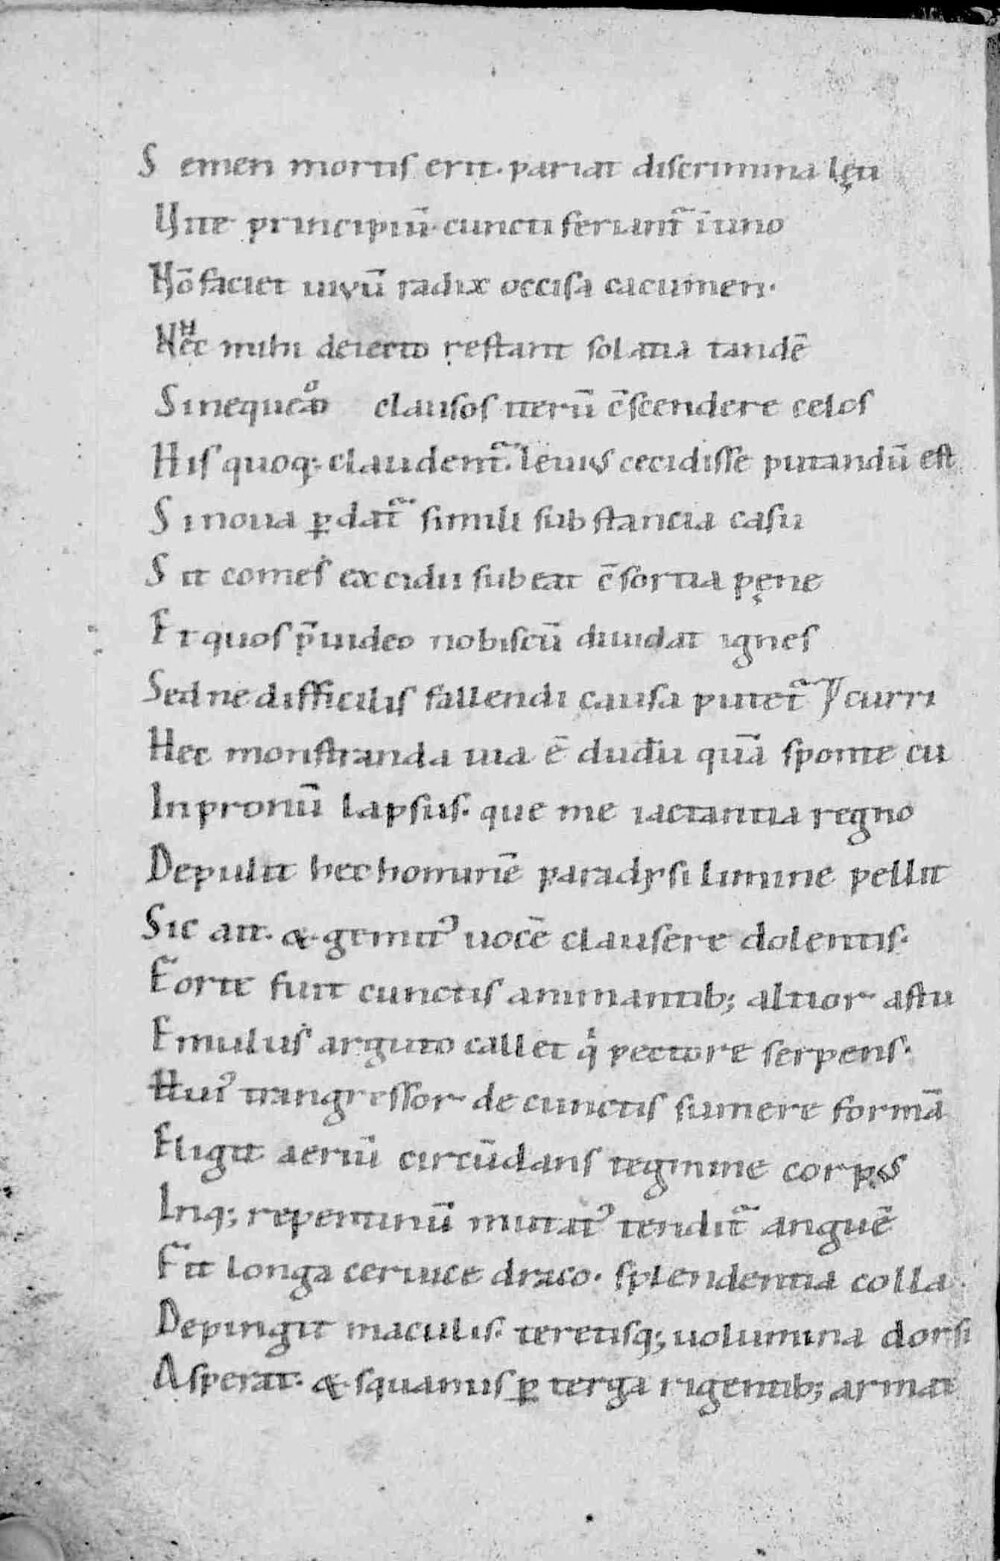 Semen mortis erit. pariat discrimina lęti
Vite principiū. cuncti feriunt᷑ ī uno
Nō faciet uiuū radix occisa cacumen.
Hec mihi deiecto restant solatia tandē
Si nequeo clausos iterū c̄scendere celos
His quoq; claudent᷑. leuius cecidisse putandū est
Si noua ꝑdat᷑ simili substancia casu
Sit comes excidii subeat c̄sortia pęne
Et quos p̄uideo nobiscū diuidat ignes
Sed ne difficilis fallendi causa putet᷑
Hec monstranda uia ē dudū quā sponte cucurri
In pronū lapsus. que me iactantia regno
Depulit hec hominē paradysi limine pellit
Sic ait. & gemitꝰ uocē clausere dolentis.
Forte fuit cunctis animantib; altior astu
Emulus arguto callet qͥ pectore serpens.
Huiꝰ trangressor de cunctis sumere formā
Eligit aeriū circūdans tegmine corpus
Inq; repentinū mutatꝰ tendit᷑ anguē
Fit longa ceruice draco. splendentia colla.
Depingit maculis. teretisq; uolumina dorsi
Asperat. & squamis ꝑ terga rigentib; armat